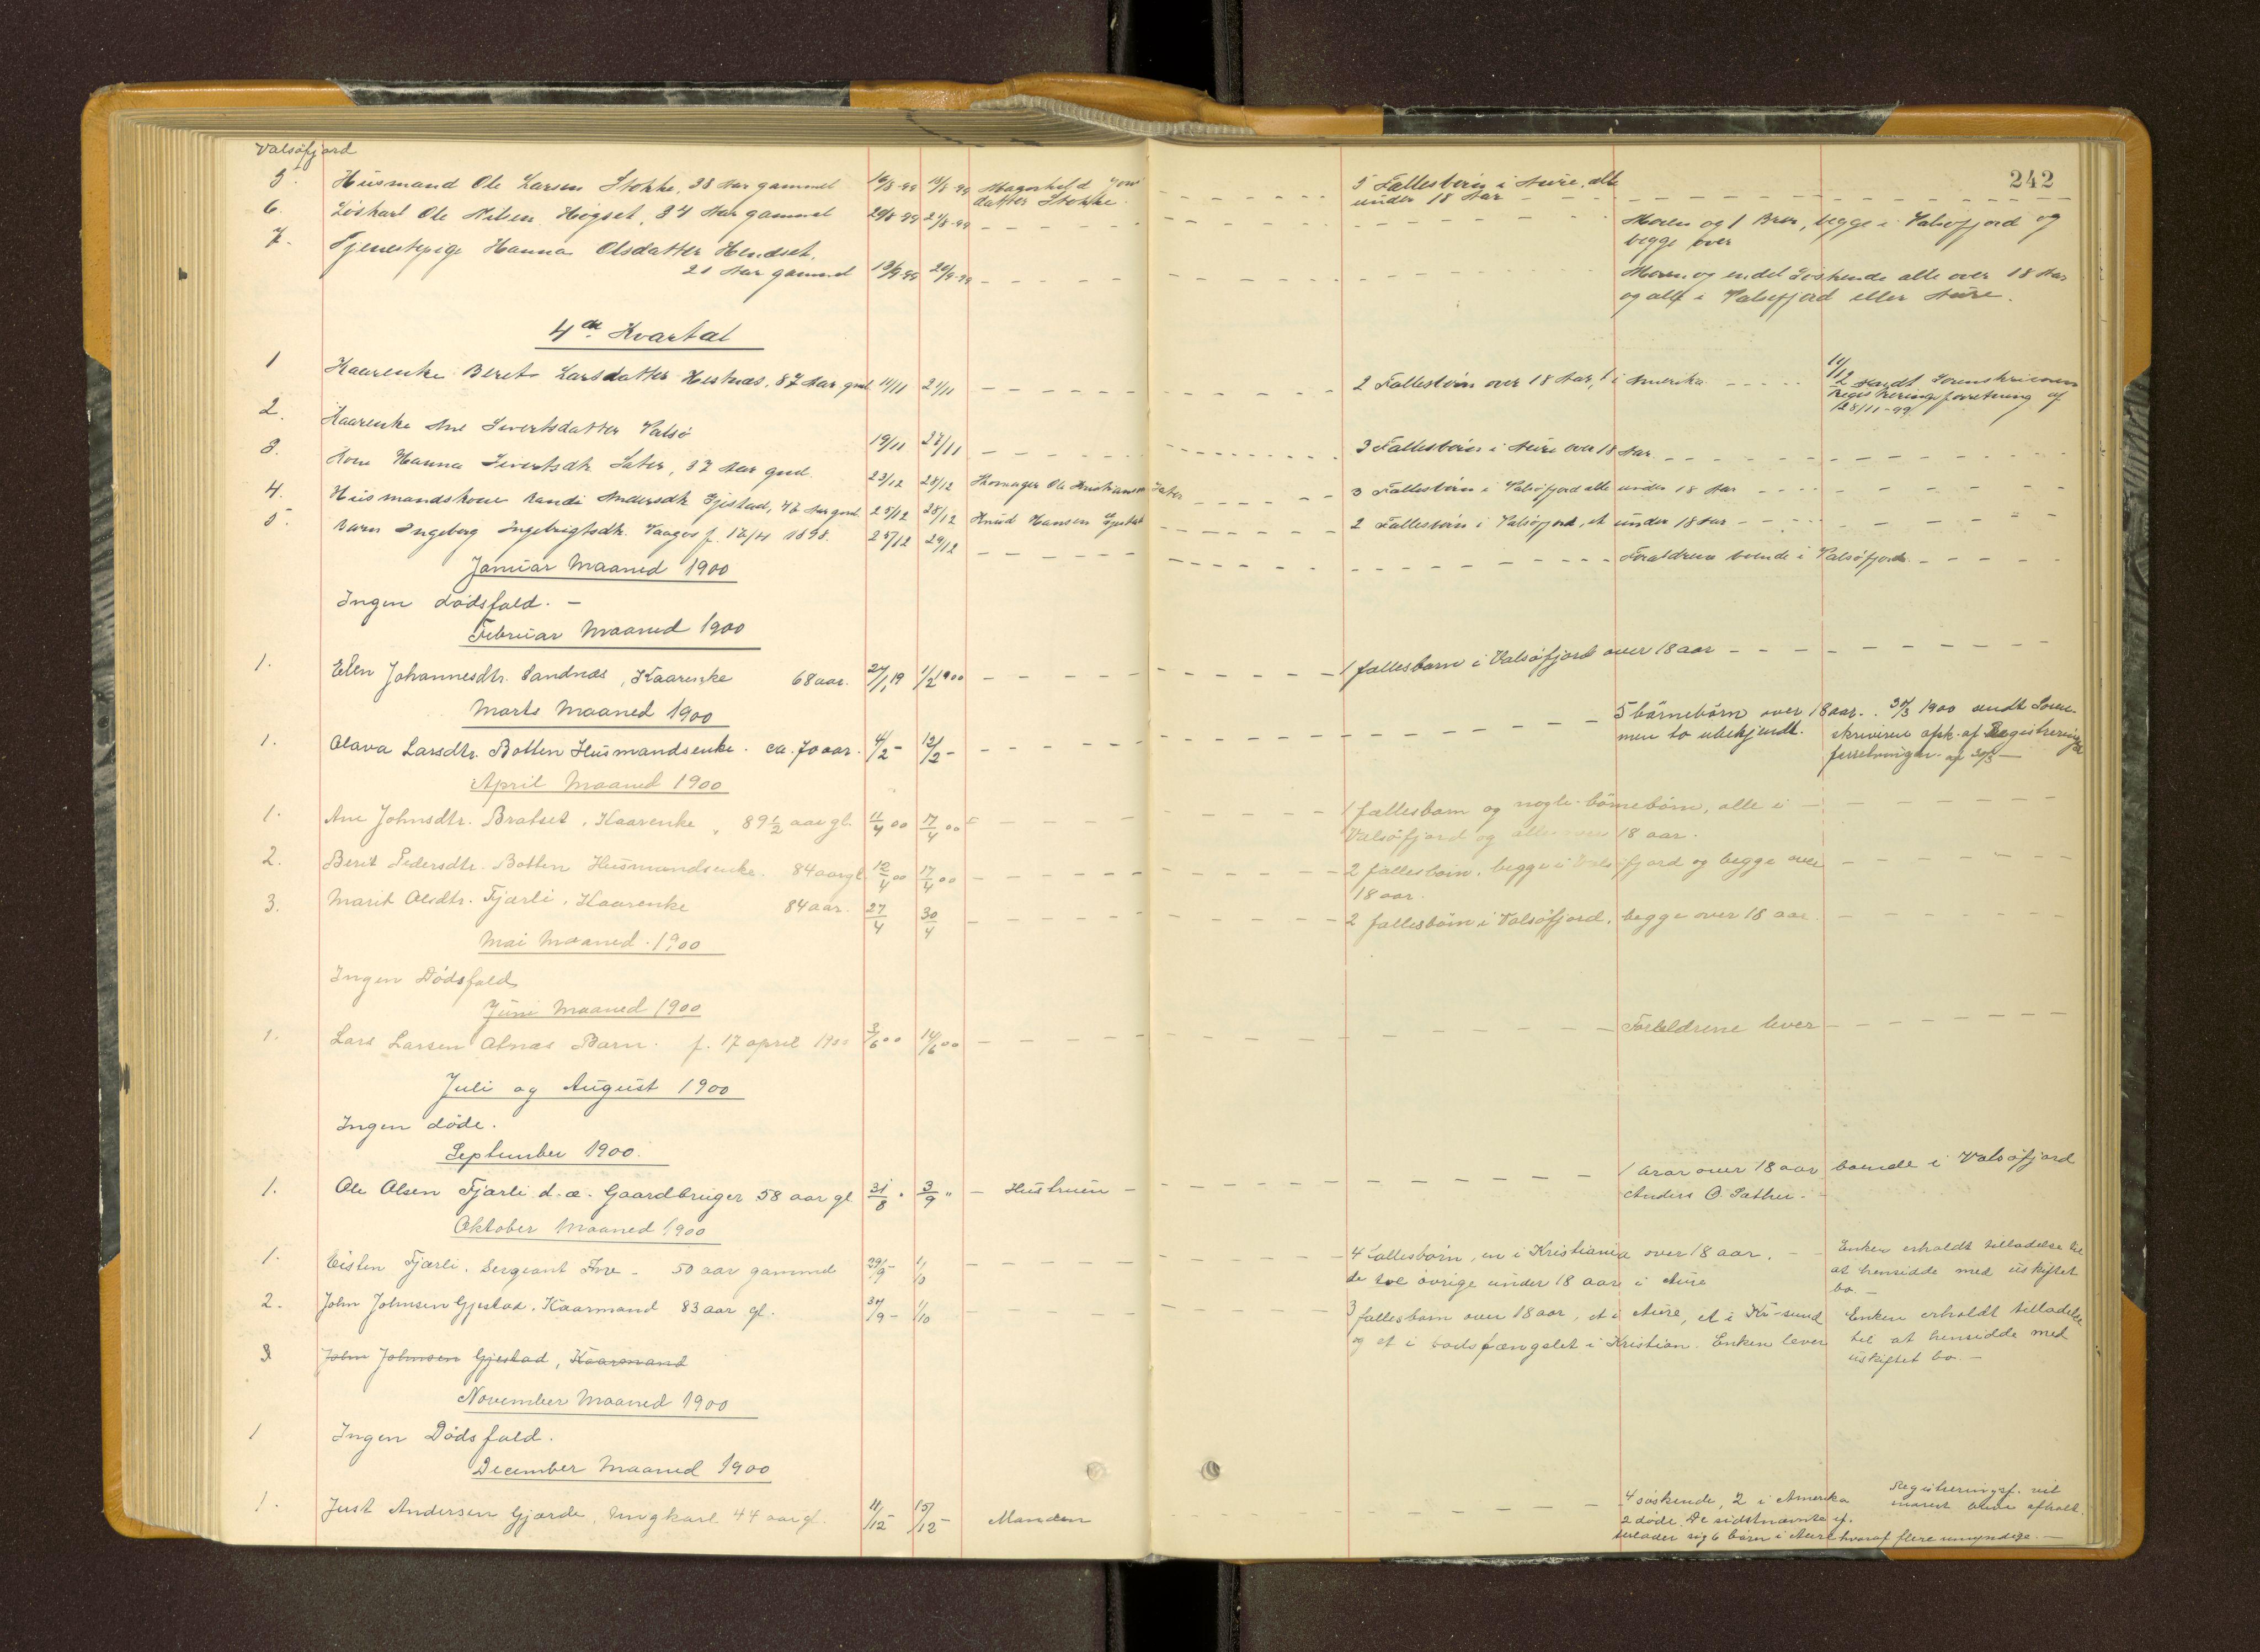 242
Valsöfjord
5. Husmand Ole Larsen Stokke, 38 Aar gammel 16/8-99 19/8-99 Magnhild Jons 5 Fællesbörn i Aure, alle
datter Stokke. under 18 Aar
6. Löskarl Ole Nilsen Högset, 34 Aar gammel 20/8-99 27/8-99 Moren og 1 Bror, begge i Valsöfjord og
begge over
7. Tjenestepige Hanna Olsdatter Hendset,
21 Aar gammel 13/9-99 20/9-99 Moren og endel Söskende alle over 18 Aar
og alle i Valsöfjord eller Aure.
4de Kvartal
1 Kaarenke Beret Larsdatter Hestnæs, 87 Aar gml 14/11 21/11 2 Fællesbörn over 18 Aar, 1 i Amerika 11/12 sendt Sorenskriveren
Registreringsforretning af
28/11-99.
2. Kaarenke Ane Sivertsdatter Valsö 19/11 27/11 3 Fællesbörn i Aure over 18 Aar
3. Kone Hanna Sivertsdtr Sæter, 37 Aar gml. 23/12 28/12 Skomager Ole Kristiansen Sæter 3 Fællesbörn i Valsöfjord alle under 18 Aar
4. Husmandskone Randi Andersdtr Gjestad, 46 Aar gml 25/12 28/12 Knud Hansen Gjestad 2 Fællesbörn i Valsöfjord, et under 18 Aar
5. Barn Ingeborg Ingebrigtsdtr. Vaagos f. 12/4 1898. 25/12 29/12 Forældrene boende i Valsöfjord
Januar Maaned 1900
Ingen dödsfald. –
Februar Maaned 1900
1. Elen Johannesdtr. Sandnæs, Kaarenke 68 aar. 27/1 19 1/2 1900 1 fællesbarn i Valsöfjord over 18 aar
Marts Maaned 1900
1. Olava Larsdtr. Botten Husmandsenke. ca. 70 aar. 4/2 – 12/2 – 5 börnebörn over 18 aar. 30/3 1900 sendt Soren-
men to ubekjendt. skriveren afsk. af Registrerings
forretningen af 30/3 –
April Maaned 1900
1. Ane Johnsdtr. Bratset, Kaarenke, 89 1/2 aar gl. 11/4 00 17/4 00 1 fællesbarn og nogle börnebörn, alle i
Valsöfjord og alle over 18 aar.
2. Berit Pedersdtr. Botten Husmandsenke. 84 aar gl 12/4 00 17/4 00 2 fællesbörn, begge i Valsöfjord og begge over
18 aar.
3. Marit Olsdtr. Fjærli, Kaarenke 84 aar. 27/4 30/4 2 fællesbörn i Valsöfjord, begge over 18 aar.
Mai Maaned 1900
Ingen Dödsfald
Juni Maaned 1900
1. Lars Larsen Alnæs Barn. f. 17 april 1900 3/6 00 14/6 00 Forældrene lever
Juli og August 1900
Ingen döde.
September 1900.
1. Ole Olsen Fjærli d.æ. Gaardbruger 58 aar gl 31/8 " 3/9 " – Hustruen – 1 bror over 18 aar boende i Valsöfjord
Anders O. Sæther.
Oktober Maaned 1900
1. Eisten Fjærli, Sergeant – 50 aar gammel 29/9 – 1/10 4 fællesbörn, en i Kristiania over 18 aar. Enken erholdt tilladelse til
de tre övrige under 18 aar i Aure at hensidde med uskiftet
bo. –
2. John Johnsen Gjestad, Kaarmand 83 aar gl. 30/9 – 1/10 3 fællesbarn over 18 aar, et i Aure, et i Kr-sund Enken erholdt tilladelse
og et i bodsfængslet i Kristian. Enken lever til at hensidde med
uskiftet bo. –
3 John Johnsen Gjestad, Kaarmand
November Maaned 1900
1 Ingen Dödsfald.
December Maaned 1900
1. Just Andersen Gjærde, Ungkarl 44 aar gl. 11/12 – 15/12 – Manden 4 söskende, 2 i Amerika Registreringsf. vil
2 döde. De sidstnævnte ef. snarest blive afholdt
terlader sig 6 börn i Aure hvoraf flere umyndige. –